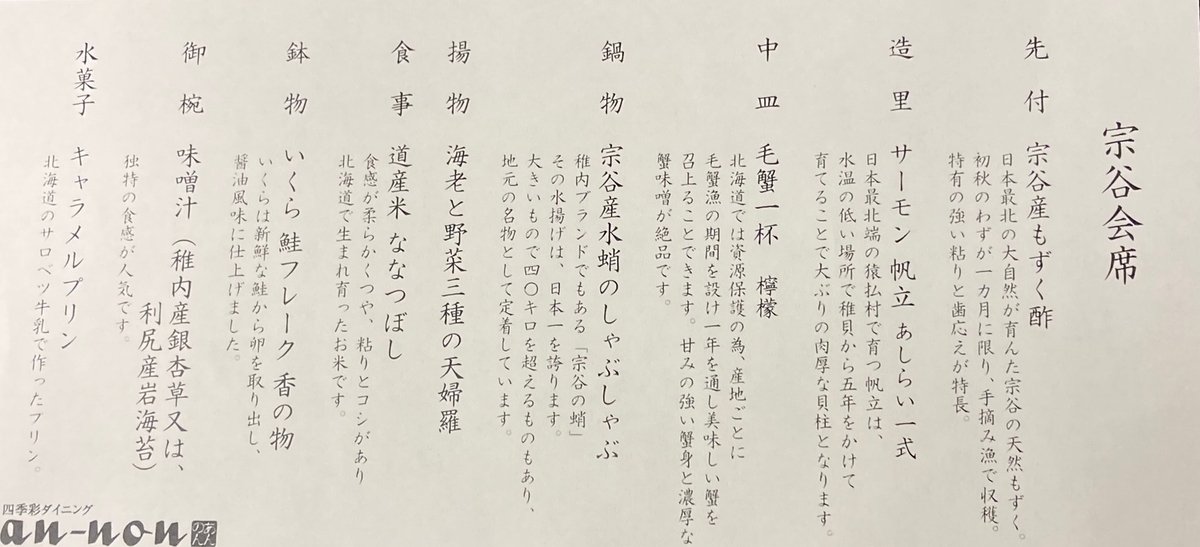 宗谷会席
先付 宗谷産もずく酢
日本最北の大自然が育んだ宗谷の天然もずく。
初秋のわずが一カ月に限り、手摘み漁で収穫。
特有の強い粘りと歯応えが特長。
造里 サーモン 帆立 あしらい一式
日本最北端の猿払村で育つ帆立は、
水温の低い場所で稚貝から五年をかけて
育てることで大ぶりの肉厚な貝柱となります。
中皿 毛蟹一杯 檸檬
北海道では資源保護の為、産地ごとに
毛蟹漁の期間を設け一年を通し美味しい蟹を
召上ることできます。甘みの強い蟹身と濃厚な
蟹味噌が絶品です。
鍋物 宗谷産水蛸のしゃぶしゃぶ
稚内ブランドでもある「宗谷の蛸」
その水揚げは、日本一を誇ります。
大きいもので四〇キロを超えるものもあり、
地元の名物として定着しています。
揚物 海老と野菜三種の天婦羅
食事 道産米 ななつぼし
食感が柔らかくつや、粘りとコシがあり
北海道で生まれ育ったお米です。
鉢物 いくら 鮭フレーク 香の物
いくらは新鮮な鮭から卵を取り出し、
醤油風味に仕上げました。
御椀 味噌汁（稚内産銀杏草又は、
利尻産岩海苔）
独特の食感が人気です。
水菓子 キャラメルプリン
北海道のサロベツ牛乳で作ったプリン。
四季彩ダイニング
an-non あんのん